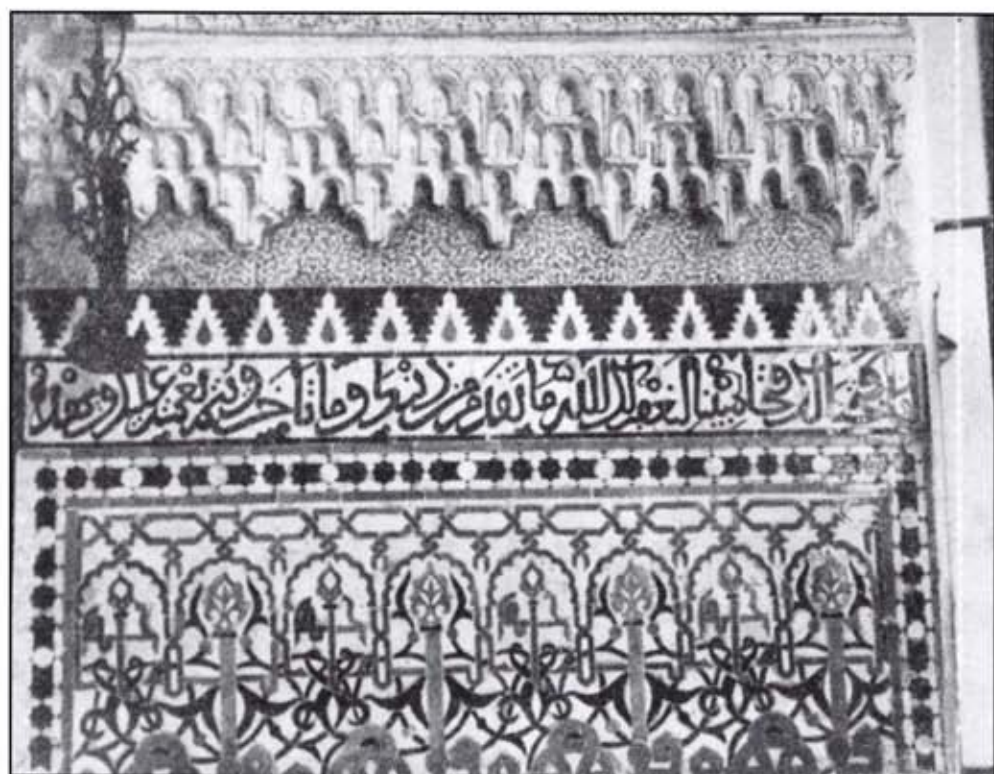 فتحا مبينا ليغفر لك الله ما تقدم من ذنبك وما تأخر ويتم نعمته عليك